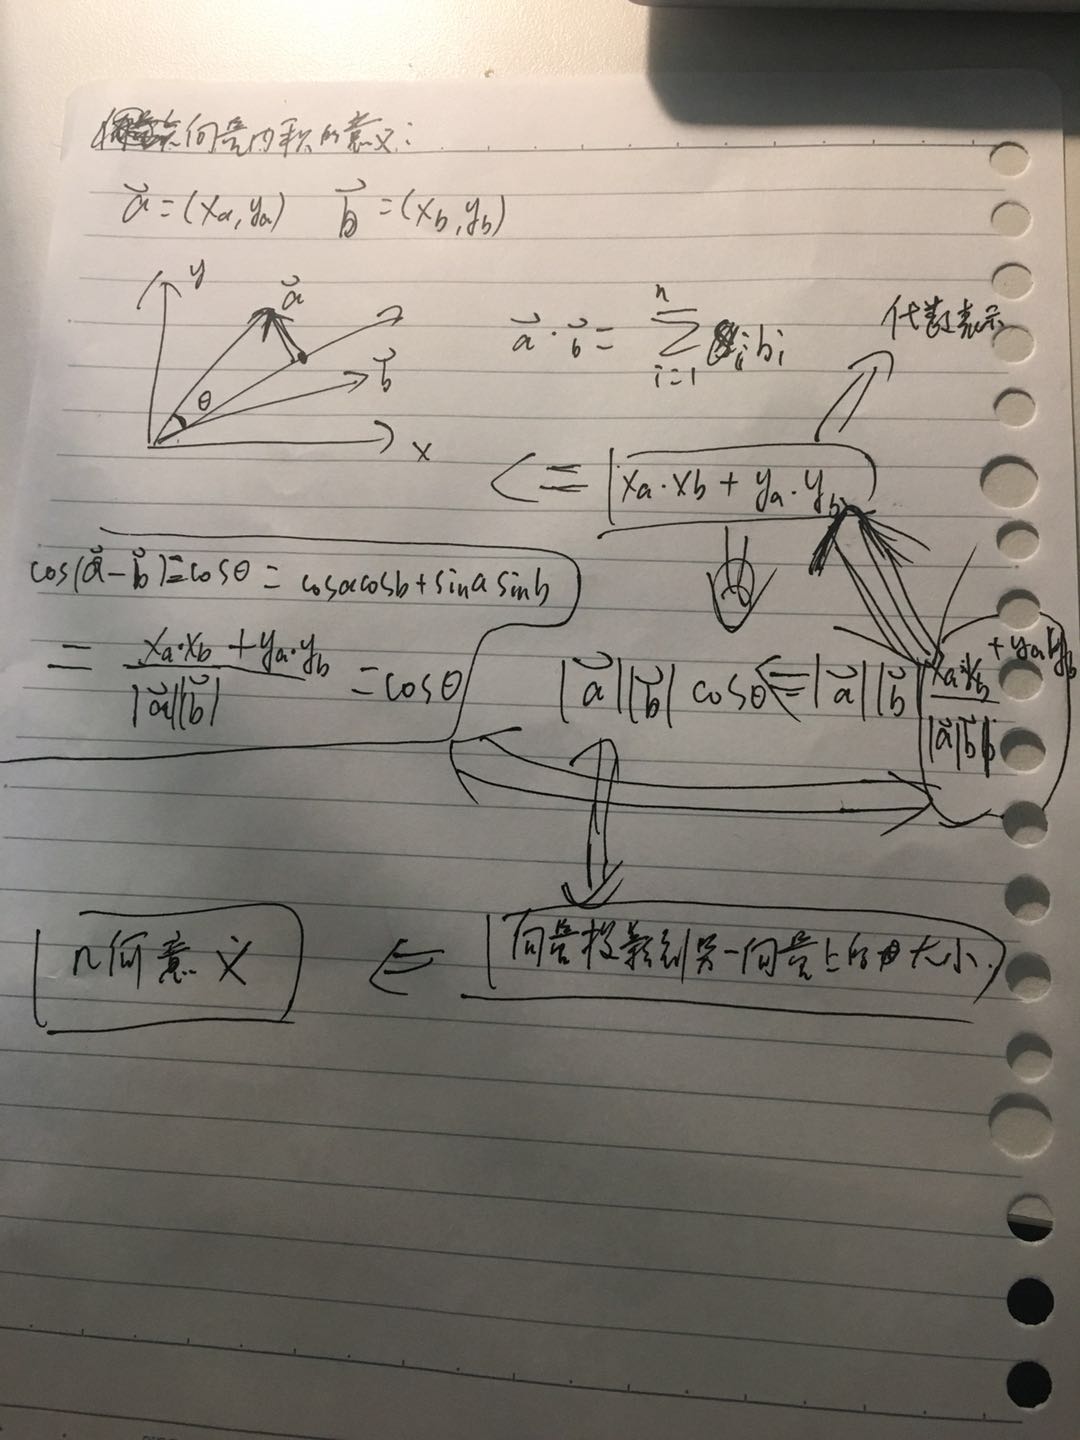 向量内积的意义:
a⃗=(xₐ,yₐ) b⃗=(x_b,y_b)
y
a⃗
θ
b⃗
x
a⃗·b⃗= n∑i=1 aᵢbᵢ
代表示
<= xₐ·x_b + yₐ·y_b
cos(a⃗-b⃗)=cosθ = cosacosb+sinasinb
= (xₐ·x_b+yₐ·y_b)/(|a⃗||b⃗|) = cosθ
|a⃗||b⃗| cosθ <= |a⃗||b⃗| (xₐ·x_b + yₐ·y_b)/(|a⃗||b⃗|)
几何意义 <= 向量投影到另一向量上的大小.